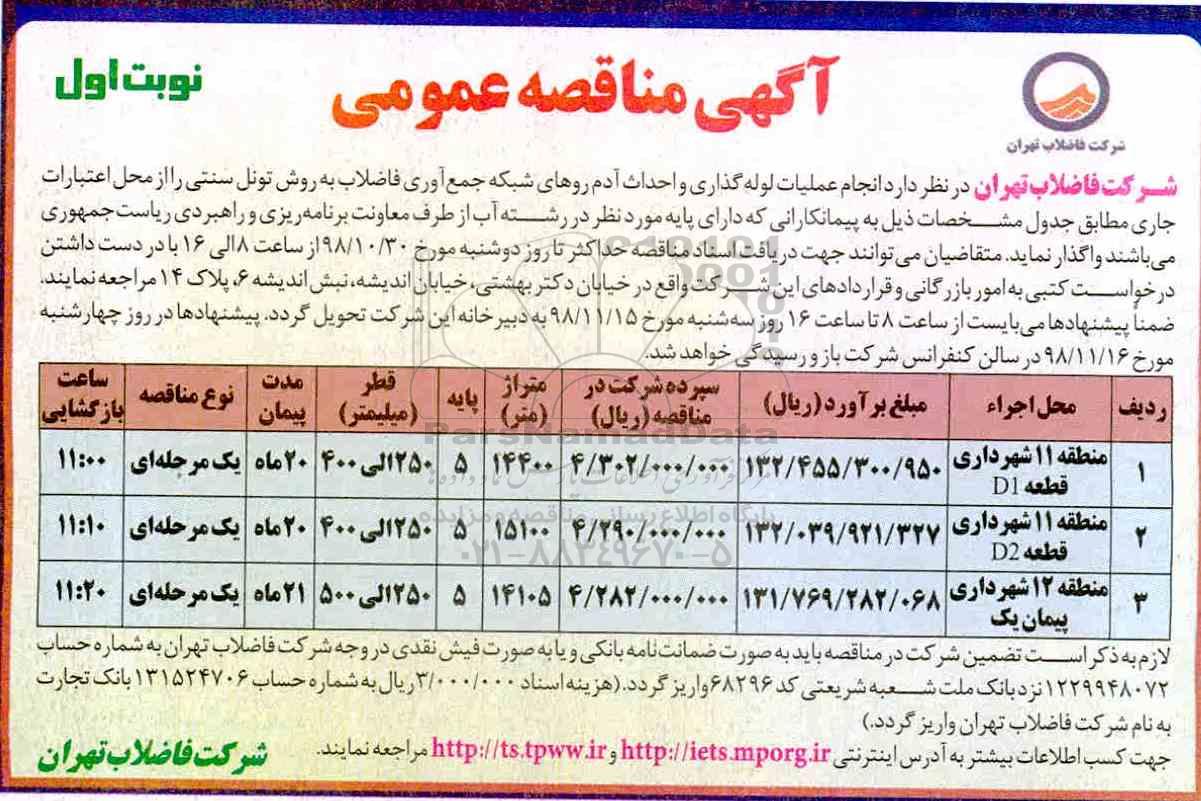 آگهی مناقصه عمومی
نوبت اول
شرکت فاضلاب تهران
شرکت فاضلاب تهران در نظر دارد انجام عملیات لوله گذاری و احداث آدم روهای شبکه جمع آوری فاضلاب به روش تونل سنتی را از محل اعتبارات
جاری مطابق جدول مشخصات ذیل به پیمانکارانی که دارای پایه مورد نظر در رشته آب از طرف معاونت برنامه ریزی و راهبردی ریاست جمهوری
می باشند واگذار نماید. متقاضیان می توانند جهت دریافت اسناد مناقصه حداکثر تا روز دوشنبه مورخ ۹۸/۱۰/۳۰ از ساعت ۸ الی ۱۶ با در دست داشتن
درخواست کتبی به امور بازرگانی و قراردادهای این شرکت واقع در خیابان دکتر بهشتی، خیابان اندیشه، نبش اندیشه ۶، پلاک ۱۴ مراجعه نمایند.
ضمناً پیشنهادها می بایست از ساعت ۸ تا ساعت ۱۶ روز سه شنبه مورخ ۹۸/۱۱/۱۵ به دبیرخانه این شرکت تحویل گردد. پیشنهادها در روز چهارشنبه
مورخ ۹۸/۱۱/۱۶ در سالن کنفرانس شرکت باز و رسیدگی خواهد شد.
ردیف محل اجراء مبلغ برآورد (ریال) سپرده شرکت در مناقصه (ریال) متراژ (متر) پایه قطر (میلیمتر) مدت پیمان نوع مناقصه ساعت بازگشایی
۱ منطقه ۱۱ شهرداری قطعه D1 ۱۳۲/۴۵۵/۳۰۰/۹۵۰ ۴/۳۰۲/۰۰۰/۰۰۰ ۱۴۴۰۰ ۵ ۲۵۰ الی ۴۰۰ ۲۰ ماه یک مرحله‌ای ۱۱:۰۰
۲ منطقه ۱۱ شهرداری قطعه D2 ۱۳۲/۰۳۹/۹۲۱/۳۲۷ ۴/۲۹۰/۰۰۰/۰۰۰ ۱۵۱۰۰ ۵ ۲۵۰ الی ۴۰۰ ۲۰ ماه یک مرحله‌ای ۱۱:۱۰
۳ منطقه ۱۲ شهرداری پیمان یک ۱۳۱/۷۶۹/۲۸۲/۰۶۸ ۴/۲۸۲/۰۰۰/۰۰۰ ۱۴۱۰۵ ۵ ۲۵۰ الی ۵۰۰ ۲۱ ماه یک مرحله‌ای ۱۱:۲۰
ParsNamadData
پایگاه اطلاع رسانی مناقصه و مزایده
۰۲۱-۸۸۳۴۹۶۷۰-۵
لازم به ذکر است تضمین شرکت در مناقصه باید به صورت ضمانت نامه بانکی و یا به صورت فیش نقدی در وجه شرکت فاضلاب تهران به شماره حساب
۱۲۲۹۹۴۸۰۷۲ نزد بانک ملت شعبه شریعتی کد ۶۸۲۹۶ واریز گردد. (هزینه اسناد ۳/۰۰۰/۰۰۰ ریال به شماره حساب ۱۳۱۵۲۴۷۰۶ بانک تجارت
به نام شرکت فاضلاب تهران واریز گردد.)
جهت کسب اطلاعات بیشتر به آدرس اینترنتی http://iets.mporg.ir و http://ts.tpww.ir مراجعه نمایند.
شرکت فاضلاب تهران